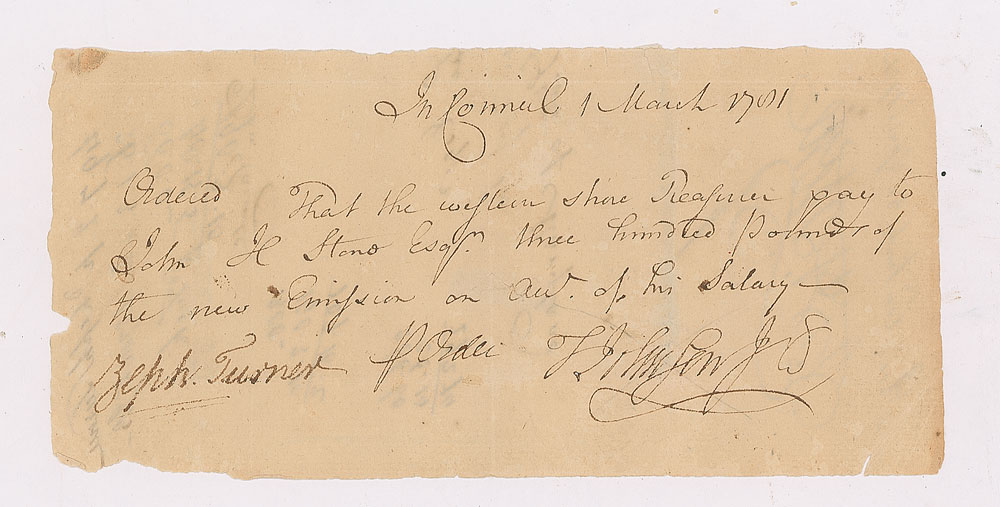 In Council 1 March 1781
Ordered That the western shore Treasurer pay to
John H Stone Esqr. three hundred Pounds of
the new Emission on Acct. of his Salary
Zeph. Turner
p Order T Johnson Jr